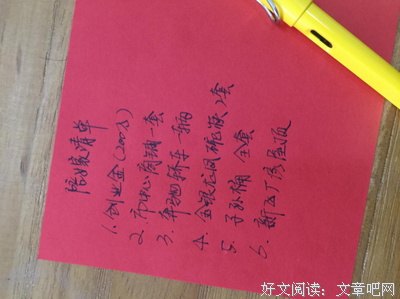 陪嫁清单
1. 创业金(200万)
2. 市中心商铺一套
3. 奔驰轿车一辆
4. 金银龙凤碗筷2套
5. 子孙桶 全套
6. 新
好文阅读：文章吧网